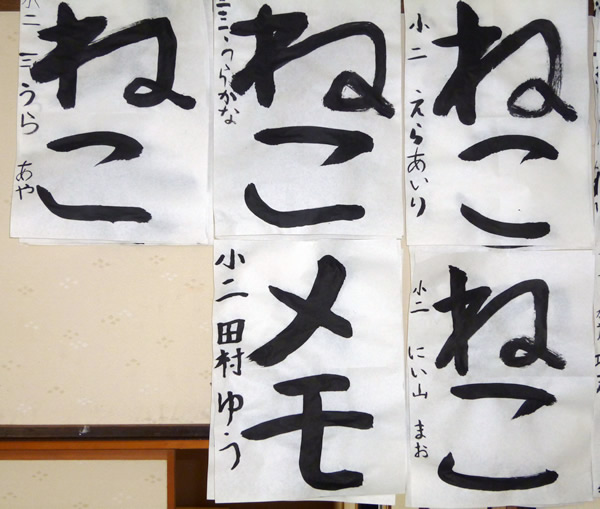 ねこ
小二 三うら あや
ねこ
小二 三うらかな
ねこ
小二 えらあいり
メモ
小二 田村ゆう
ねこ
小二 にい山 まお